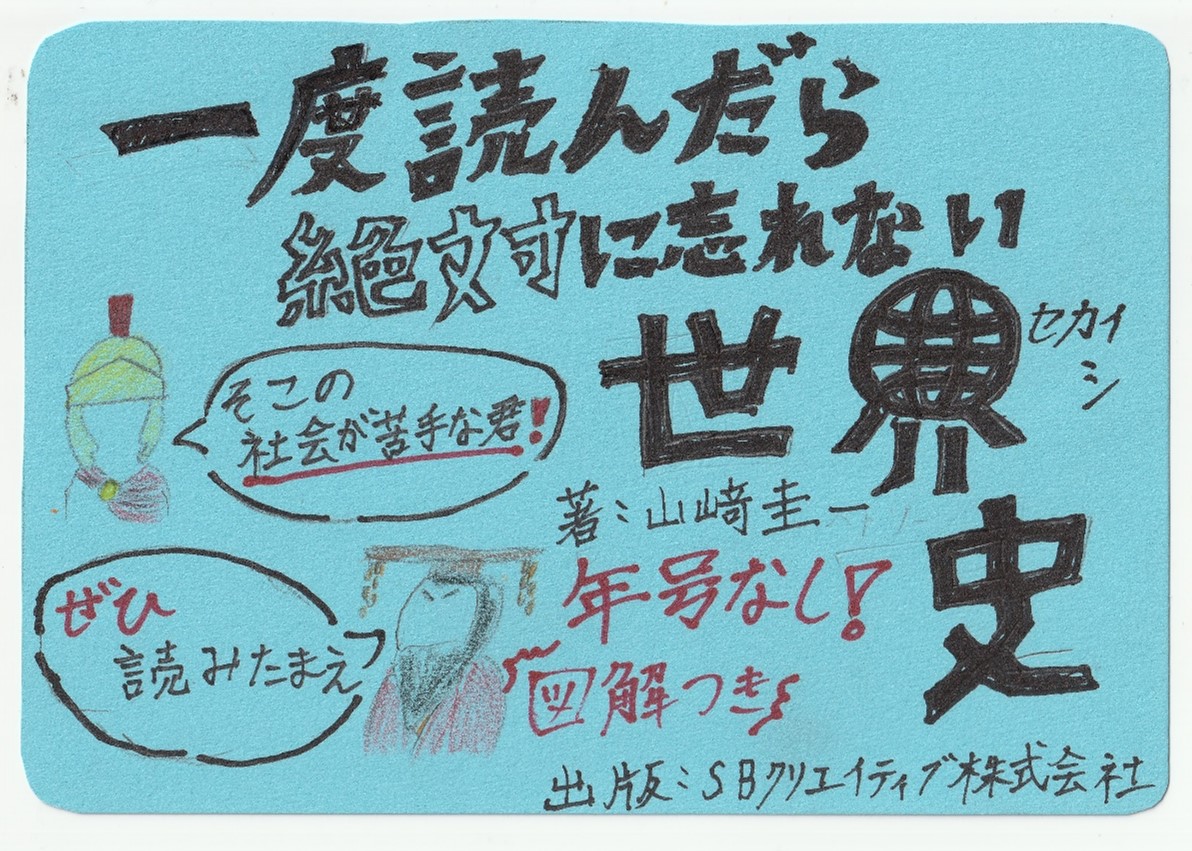 一度読んだら
絶対に忘れない
世界史
セカイ
シ
そこの
社会が苦手な君!
著:山﨑圭一
ぜひ
読みたまえ
年号なし!
図解つき
出版:SBクリエイティブ株式会社